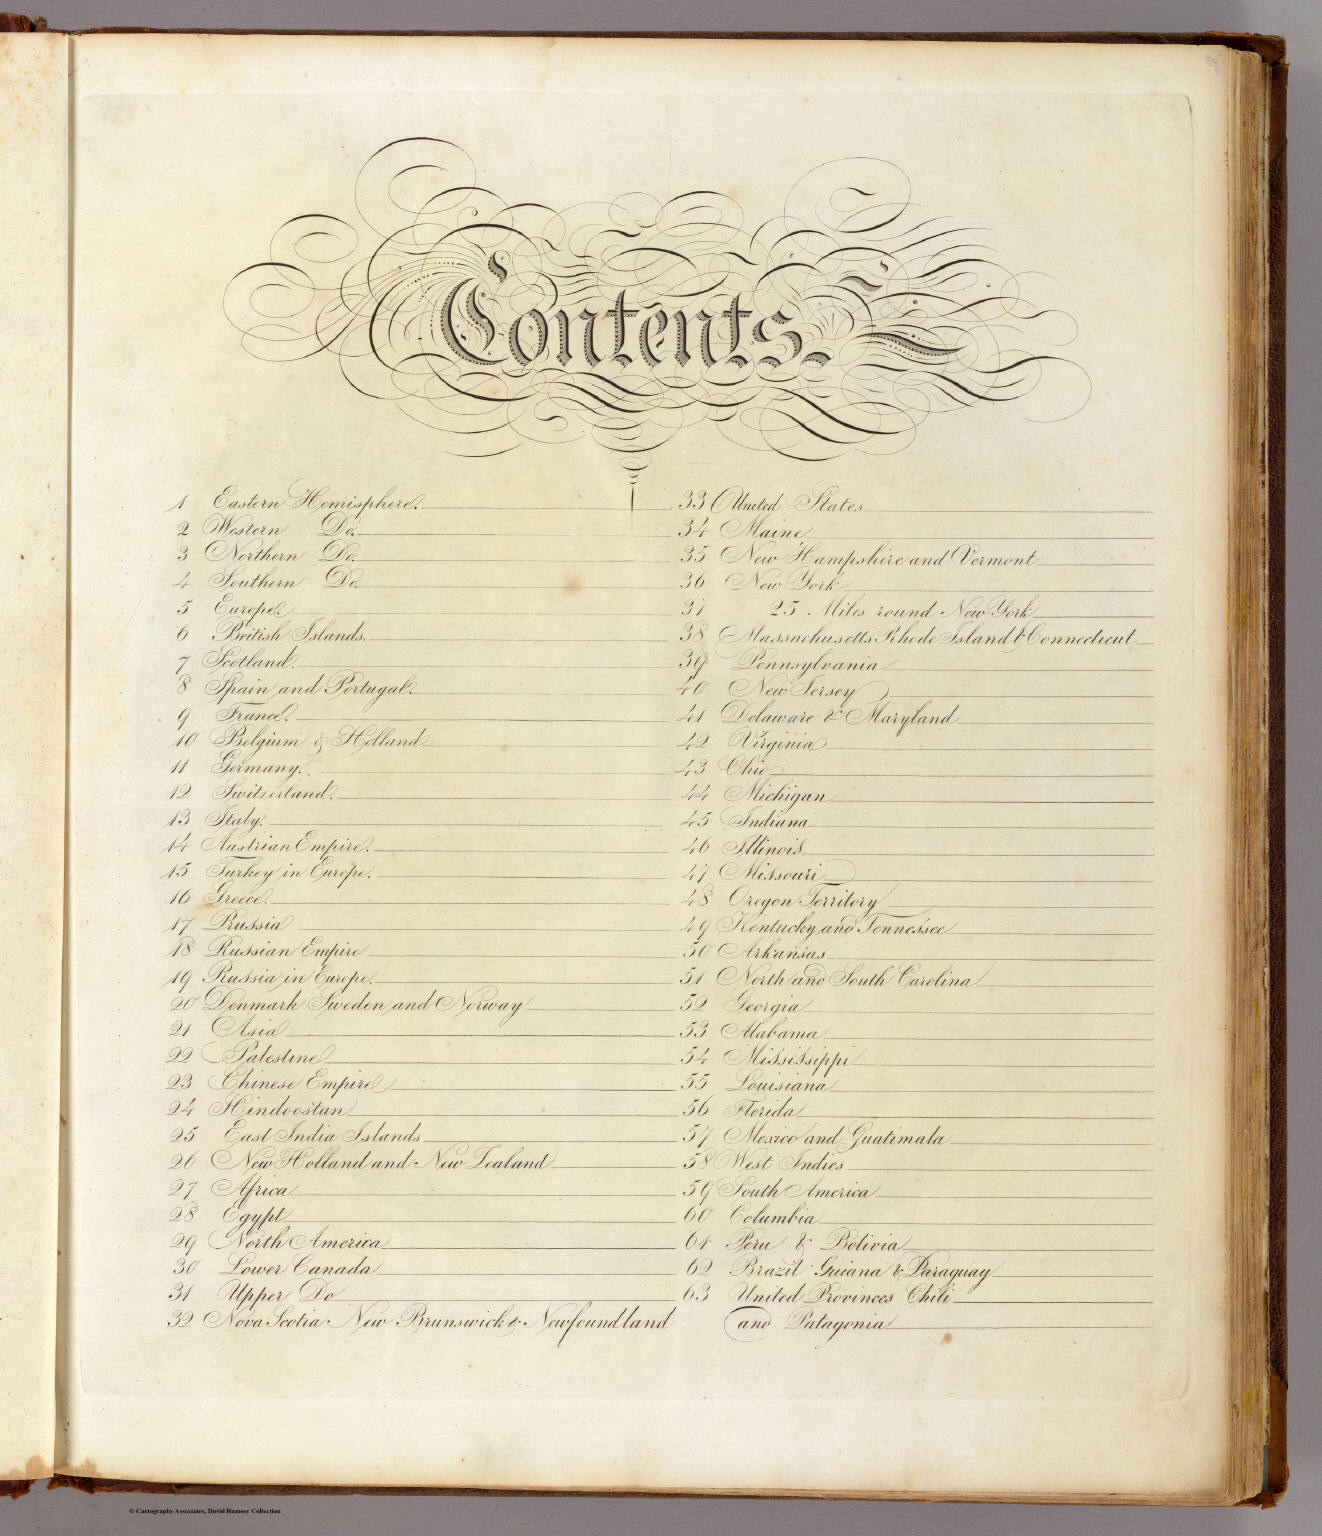 Contents.
1 Eastern Hemisphere.
2 Western Do.
3 Northern Do.
4 Southern Do.
5 Europe.
6 British Islands.
7 Scotland.
8 Spain and Portugal.
9 France.
10 Belgium & Holland.
11 Germany.
12 Switzerland.
13 Italy.
14 Austrian Empire.
15 Turkey in Europe.
16 Greece.
17 Prussia
18 Russian Empire
19 Russia in Europe.
20 Denmark Sweden and Norway
21 Asia
22 Palestine
23 Chinese Empire
24 Hindoostan
25 East India Islands
26 New Holland and New Zealand
27 Africa
28 Egypt
29 North America
30 Lower Canada
31 Upper Do
32 Nova Scotia New Brunswick & Newfoundland
33 United States
34 Maine
35 New Hampshire and Vermont
36 New York
37 25 Miles round New York
38 Massachusetts Rhode Island & Connecticut
39 Pennsylvania
40 New Jersey
41 Delaware & Maryland
42 Virginia
43 Ohio
44 Michigan
45 Indiana
46 Illinois
47 Missouri
48 Oregon Territory
49 Kentucky and Tennessee
50 Arkansas
51 North and South Carolina
52 Georgia
53 Alabama
54 Mississippi
55 Louisiana
56 Florida
57 Mexico and Guatimala
58 West Indies
59 South America
60 Columbia
61 Peru & Bolivia
62 Brazil Guiana & Paraguay
63 United Provinces Chili
and Patagonia
© Cartography Associates, David Rumsey Collection